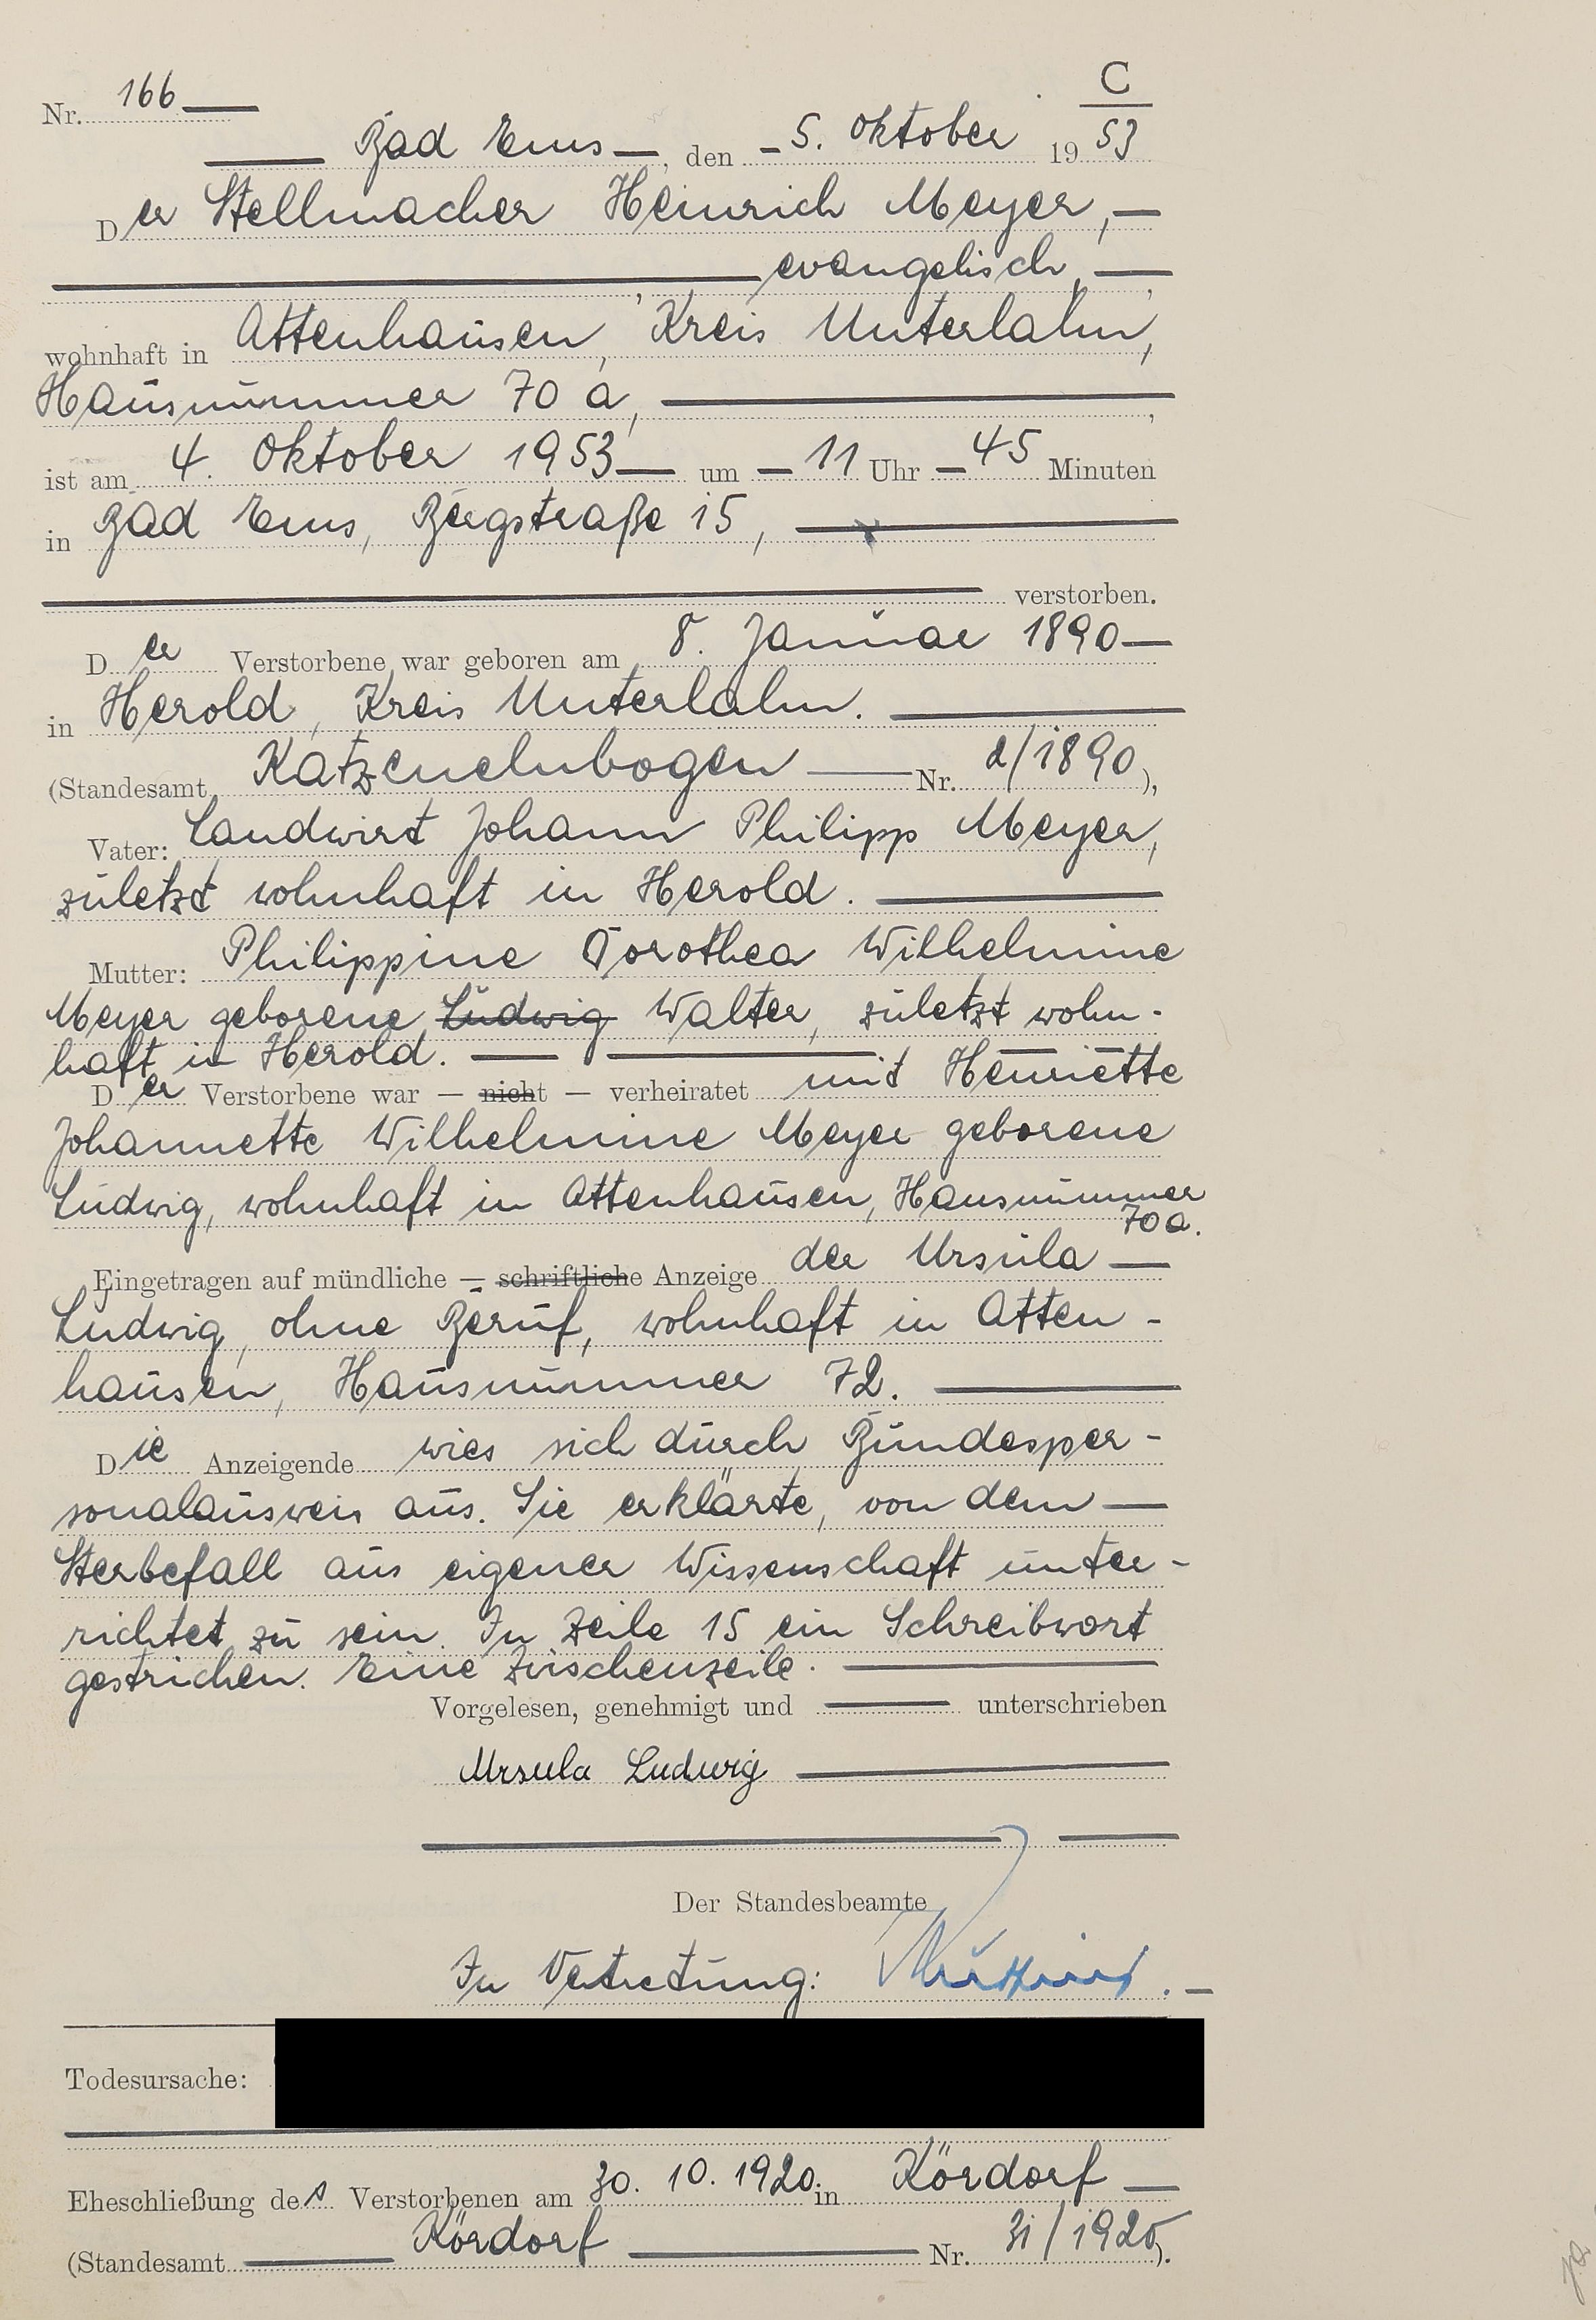 C
Nr. 166
Bad Ems, den 5. Oktober 1953
Der Stellmacher Heinrich Meyer,
evangelisch,
wohnhaft in Attenhausen, Kreis Unterlahn,
Hausnummer 70 a,
ist am 4. Oktober 1953 um 11 Uhr 45 Minuten
in Bad Ems, Bergstraße 15,
verstorben.
Der Verstorbene war geboren am 8. Januar 1890
in Herold, Kreis Unterlahn.
(Standesamt Katzenelnbogen Nr. 2/1890),
Vater: Landwirt Johann Philipp Meyer,
zuletzt wohnhaft in Herold.
Mutter: Philippine Dorothea Wilhelmine
Meyer geborene Ludwig Walter, zuletzt wohn-
haft in Herold.
Der Verstorbene war — nicht — verheiratet mit Henriette
Johannette Wilhelmine Meyer geborene
Ludwig, wohnhaft in Attenhausen, Hausnummer
70a.
Eingetragen auf mündliche — schriftliche Anzeige der Ursula
Ludwig, ohne Beruf, wohnhaft in Atten-
hausen, Hausnummer 72.
Die Anzeigende wies sich durch Bundesper-
sonalausweis aus. Sie erklärte, von dem
Sterbefall aus eigener Wissenschaft unter-
richtet zu sein. In Zeile 15 ein Schreibwort
gestrichen. Eine Zwischenzeile.
Vorgelesen, genehmigt und unterschrieben
Ursula Ludwig
Der Standesbeamte
In Vertretung:
Todesursache:
Eheschließung des Verstorbenen am 30. 10. 1920 in Kördorf
(Standesamt Kördorf Nr. 31/1920).